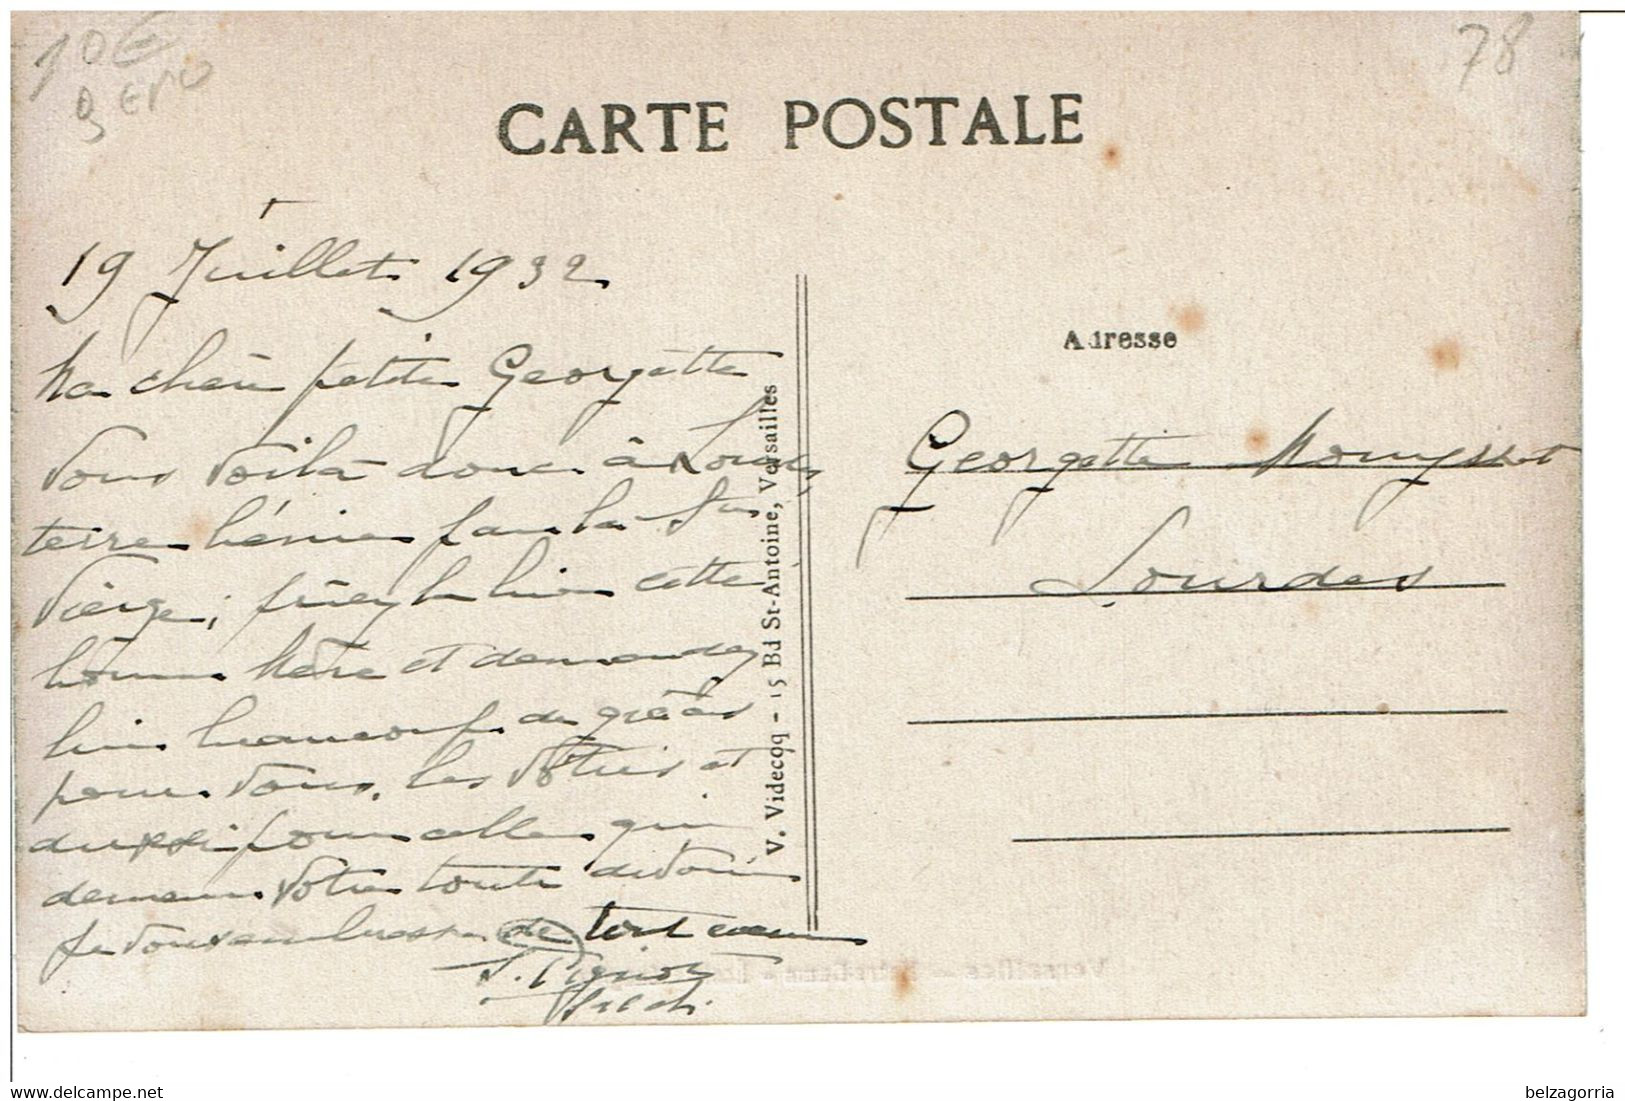 10€
78
CARTE POSTALE
19 Juillet 1932
Ma chère petite Georgette
Vous voilà donc à Lourdes,
terre bénie par la Ste
Vierge, priez bien cette
bonne Mère et demandez
lui beaucoup de grâces
pour vous, les vôtres et
aussi pour celle qui
demeure votre toute dévouée
Je vous embrasse de tout cœur
Adresse
Georgette
Lourdes
V. Videcoq - 15 Bd St-Antoine, Versailles
belzagorria